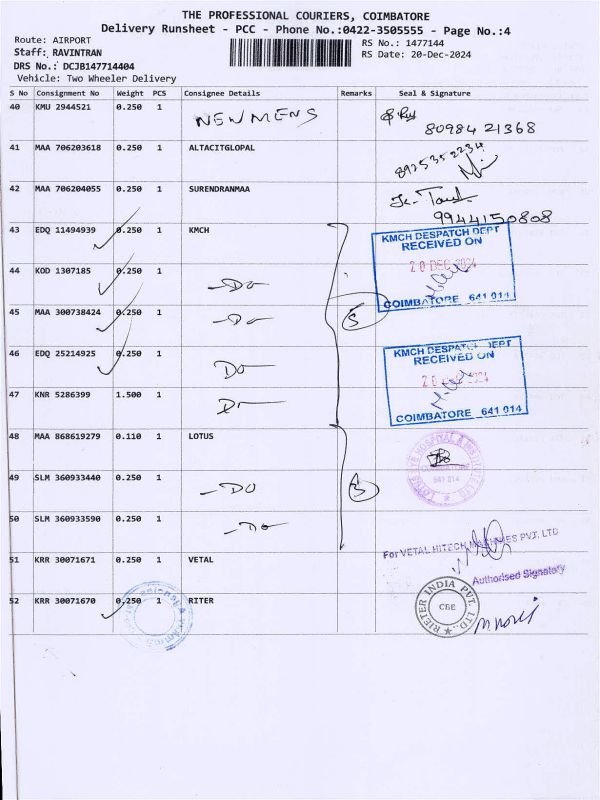 THE PROFESSIONAL COURIERS, COIMBATORE
Delivery Runsheet - PCC - Phone No.:0422-3505555 - Page No.:4
Route: AIRPORT
RS No.: 1477144
Staff: RAVINTRAN
RS Date: 20-Dec-2024
DRS No.: DCJB147714404
Vehicle: Two Wheeler Delivery
S No Consignment No Weight PCS Consignee Details Remarks Seal & Signature
40 KMU 2944521 0.250 1 NEWMENS
80984 21368
41 MAA 706203618 0.250 1 ALTACITGLOPAL 8925352234
42 MAA 706204055 0.250 1 SURENDRANMAA
9944150808
43 EDQ 11494939 0.250 1 KMCH
KMCH DESPATCH DEPT
RECEIVED ON
20 DEC 2024
COIMBATORE 641 014
44 KOD 1307185 0.250 1 -Do-
45 MAA 300738424 0.250 1 -Do- 5
46 EDQ 25214925 0.250 1 Do-
KMCH DESPATCH DEPT
RECEIVED ON
COIMBATORE 641 014
47 KNR 5286399 1.500 1 Do-
48 MAA 868619279 0.110 1 LOTUS
641 014
49 SLM 360933440 0.250 1 -DO
50 SLM 360933590 0.250 1 -Do-
51 KRR 30071671 0.250 1 VETAL
For VETAL HITECH MACHINES PVT. LTD
Authorised Signatory
52 KRR 30071670 0.250 1 RITER
RIETER INDIA PVT. LTD.,
CBE